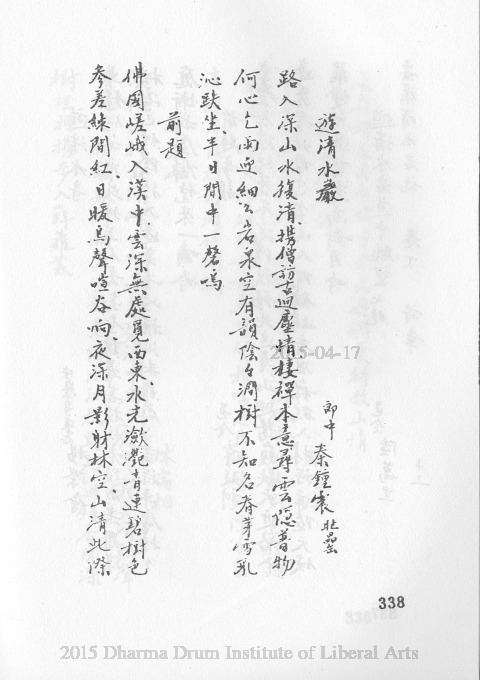 遊清水巖
郎中 秦鐘震
路入深山水復清携僧訪古迥塵情棲禪本意尋雲隱普物
何心乞雨迎細細岩泉空有韻陰陰澗樹不知名春芽雪乳
沁趺坐半日閒中一磬鳴
前題
佛國嵯峨入漢中雲深無處覓西東水光瀲灔青連碧樹色
參差綠間紅日暖鳥聲喧谷响夜深月影射林空山清此際
338
2015-04-17
2015 Dharma Drum Institute of Liberal Arts